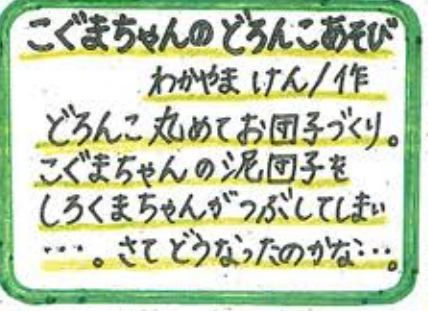 こぐまちゃんのどろんこあそび
わかやま けん/作
どろんこ丸めてお団子づくり。
こぐまちゃんの泥団子を
しろくまちゃんがつぶしてしまい
…。さてどうなったのかな…。